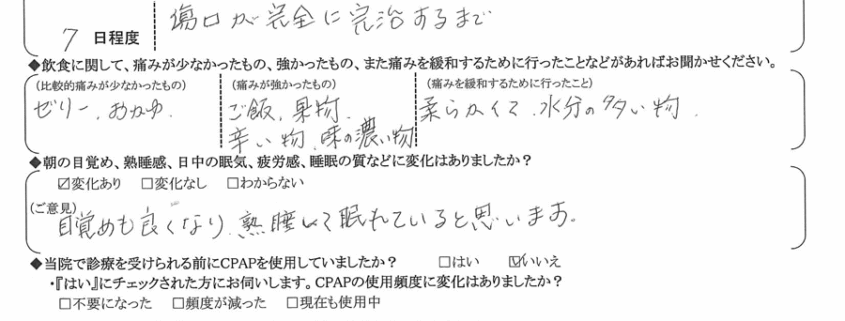 傷口が完全に完治するまで
7 日程度
◆飲食に関して、痛みが少なかったもの、強かったもの、また痛みを緩和するために行ったことなどがあればお聞かせください。
(比較的痛みが少なかったもの) (痛みが強かったもの) (痛みを緩和するために行ったこと)
ゼリー、おかゆ、 ご飯、果物、 柔らかくて、水分の多い物、
辛い物、味の濃い物
◆朝の目覚め、熟睡感、日中の眠気、疲労感、睡眠の質などに変化はありましたか?
☑変化あり □変化なし □わからない
(ご意見)
目覚めも良くなり、熟睡して眠れていると思います。
◆当院で診療を受けられる前にCPAPを使用していましたか? □はい ☑いいえ
・『はい』にチェックされた方にお伺いします。CPAPの使用頻度に変化はありましたか?
□不要になった □頻度が減った □現在も使用中